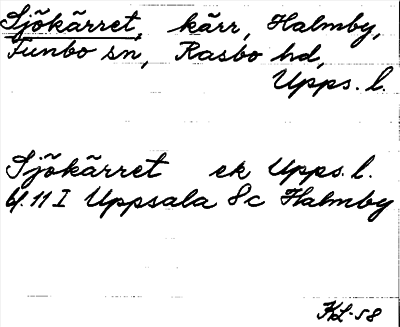 Sjökärret, kärr, Halmby,
Funbo sn, Rasbo hd,
Upps. l.
Sjökärret ek Upps. l.
bl. 11 I Uppsala 8c Halmby
KL-58